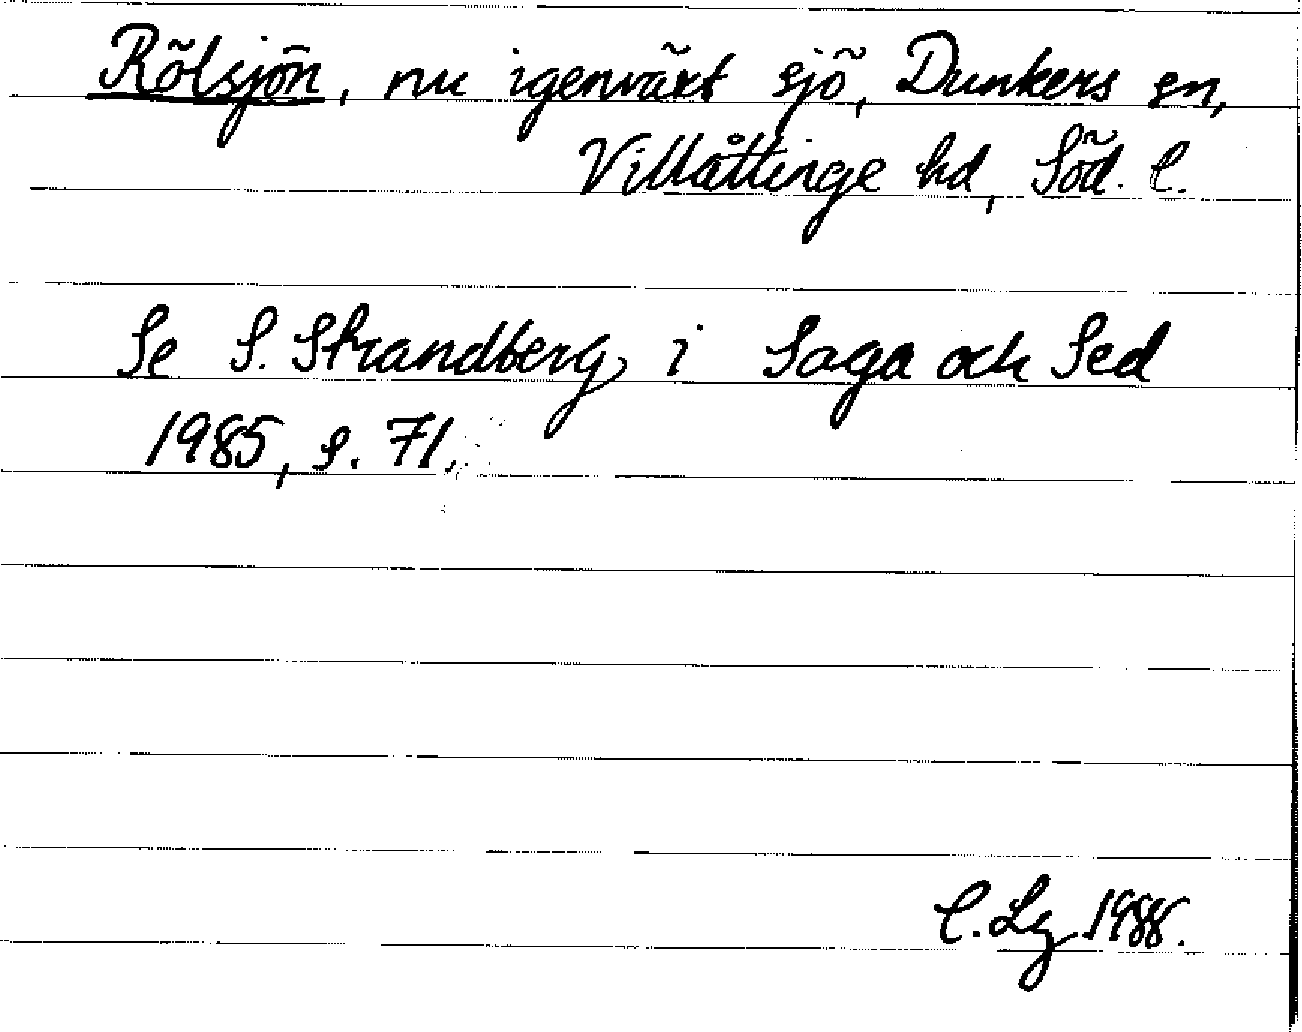 Rölsjön, nu igenväxt sjö, Dunkers sn,
Villåttinge hd, Söd. l.
Se S. Strandberg i Saga och Sed
1985, s. 71.
C. Lg 1988.